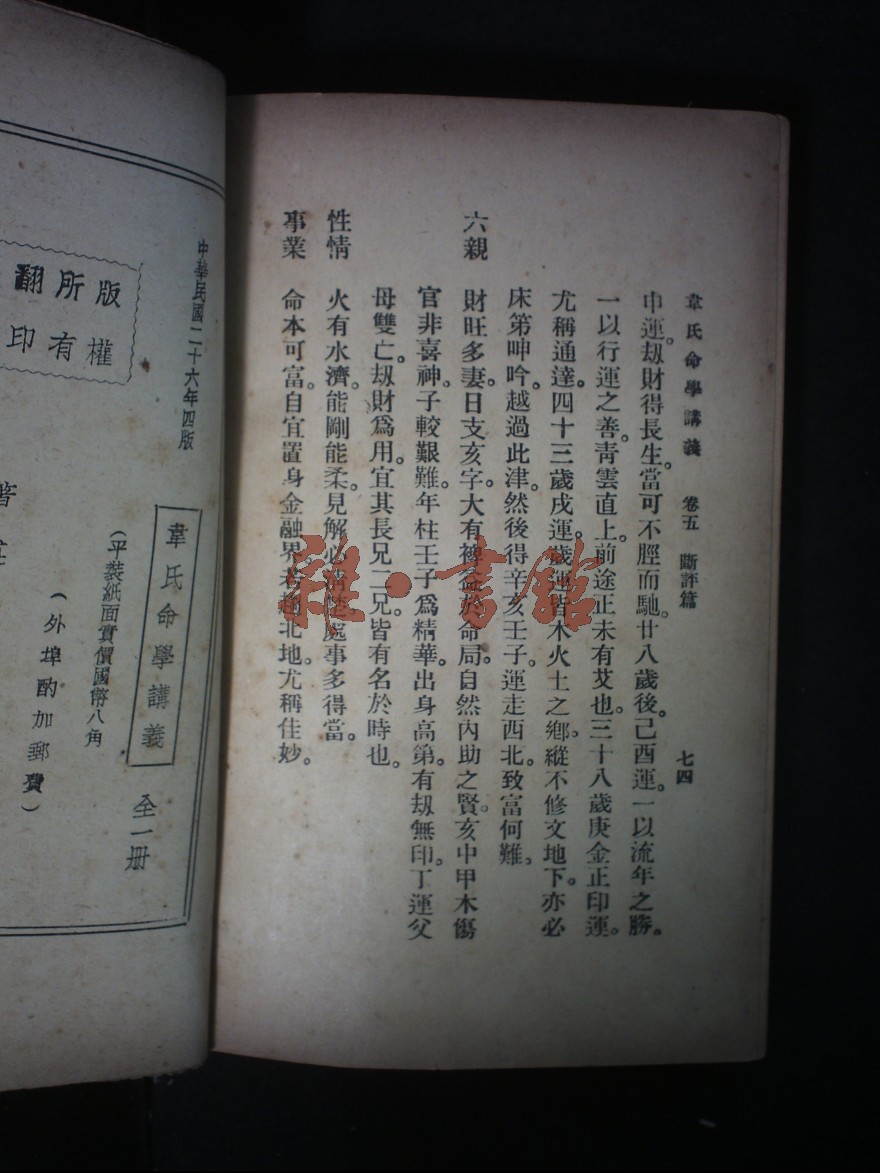 韋氏命學講義　卷五　斷評篇　七四
申運。刼財得長生。當可不脛而馳。廿八歲後。己酉運。一以流年之勝。
一以行運之善。青雲直上。前途正未有艾也。三十八歲庚金正印運。
尤稱通達。四十三歲戌運。歲運皆木火土之鄉。縱不修文地下。亦必
床第呻吟。越過此津。然後得辛亥壬子。運走西北。致富何難。
六親　財旺多妻。日支亥字。大有裨益於命局。自然內助之賢。亥中甲木傷
官非喜神。子較艱難。年柱壬子爲精華。出身高第。有刼無印。丁運父
母雙亡。刼財爲用。宜其長兄二兄。皆有名於時也。
性情　火有水濟。能剛能柔。見解必清楚。處事多得當。
事業　命本可富。自宜置身金融界。若趨北地。尤稱佳妙。
雅·書館
中華民國二十六年四版
版權
所有
翻印
韋氏命學講義　全一册
（平裝紙面實價國幣八角
（外埠酌加郵費）
著